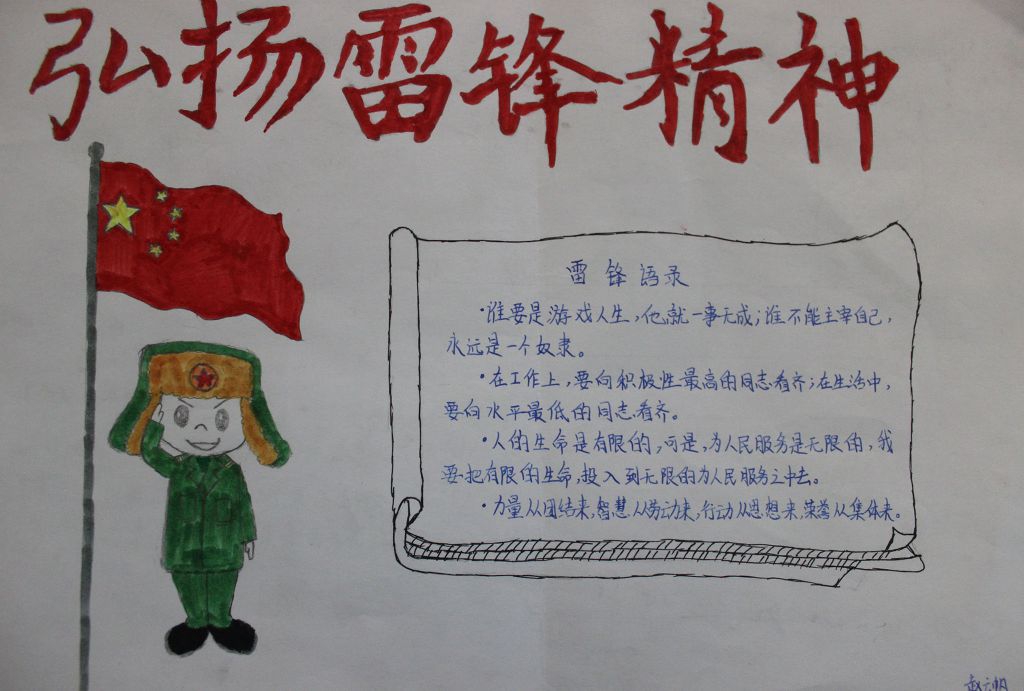 弘扬雷锋精神
雷锋语录
·谁要是游戏人生,他就一事无成;谁不能主宰自己,
永远是一个奴隶。
·在工作上,要向积极性最高的同志看齐;在生活中,
要向水平最低的同志看齐。
·人的生命是有限的,可是,为人民服务是无限的,我
要把有限的生命,投入到无限的为人民服务之中去。
·力量从团结来,智慧从劳动来,行动从思想来,荣誉从集体来。